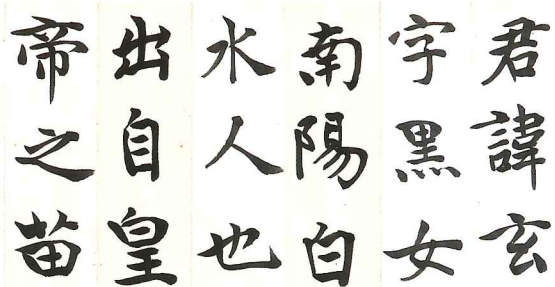 君諱玄
字黒女
南陽白
水人也
出自皇
帝之苗